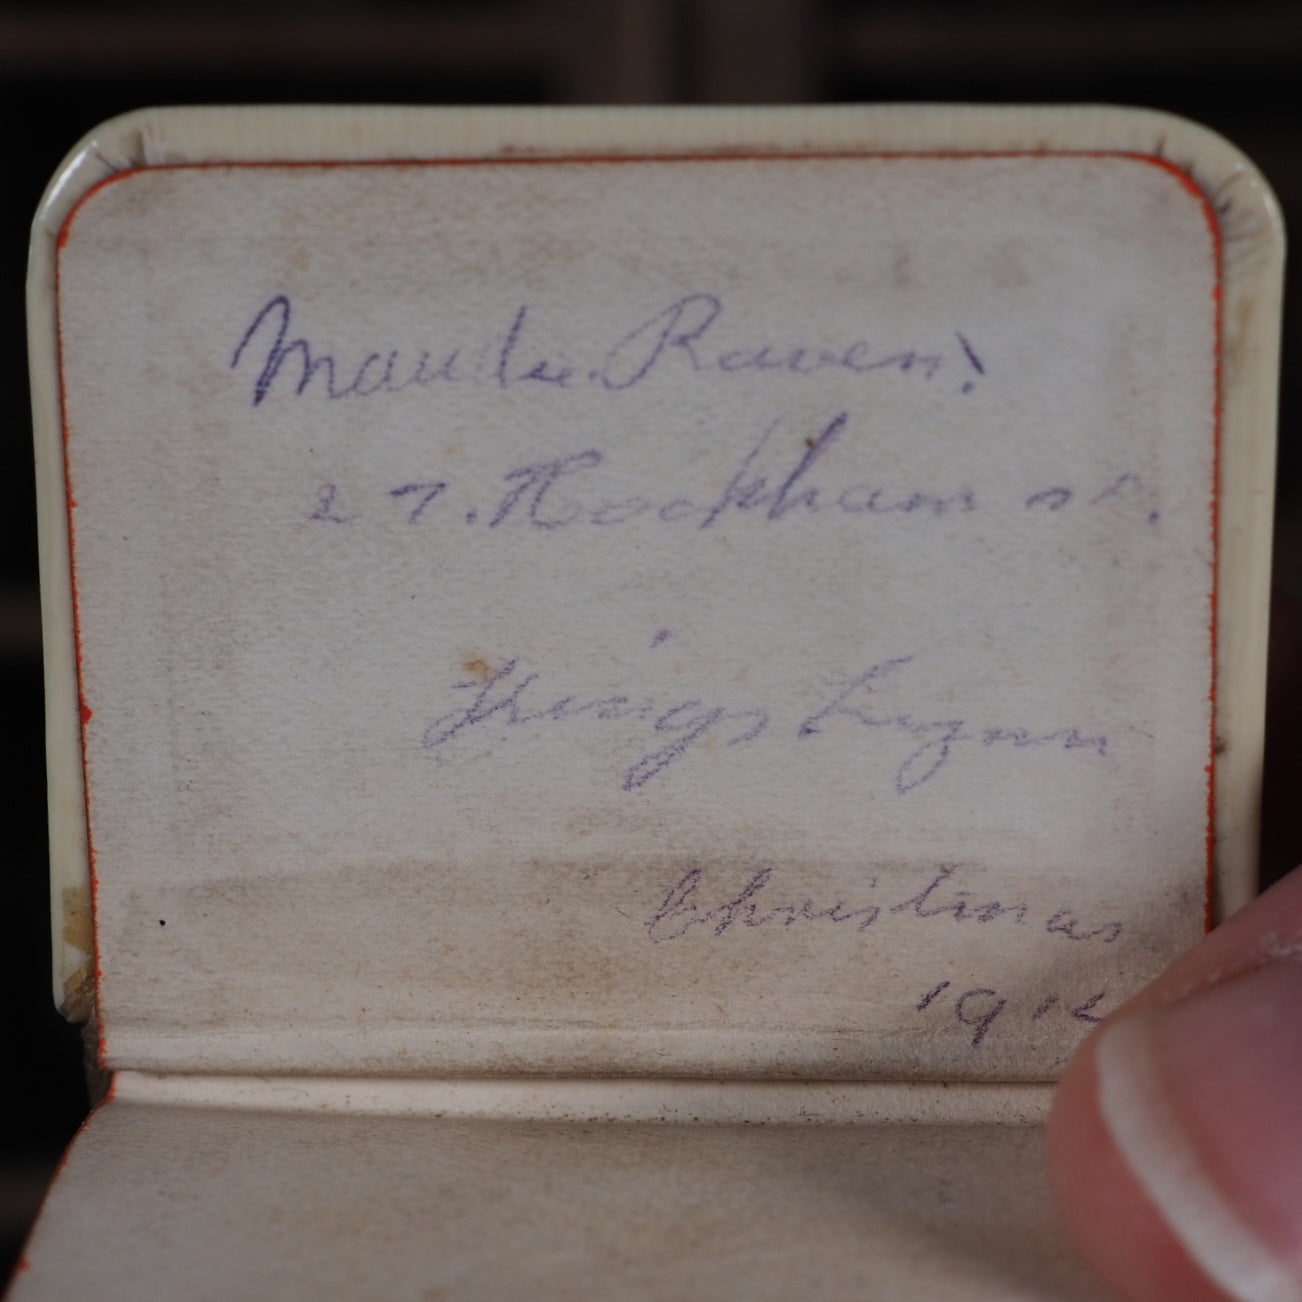 Maudie. Raven!
27. Hockham st.
Kings Lynn
Christmas
1912